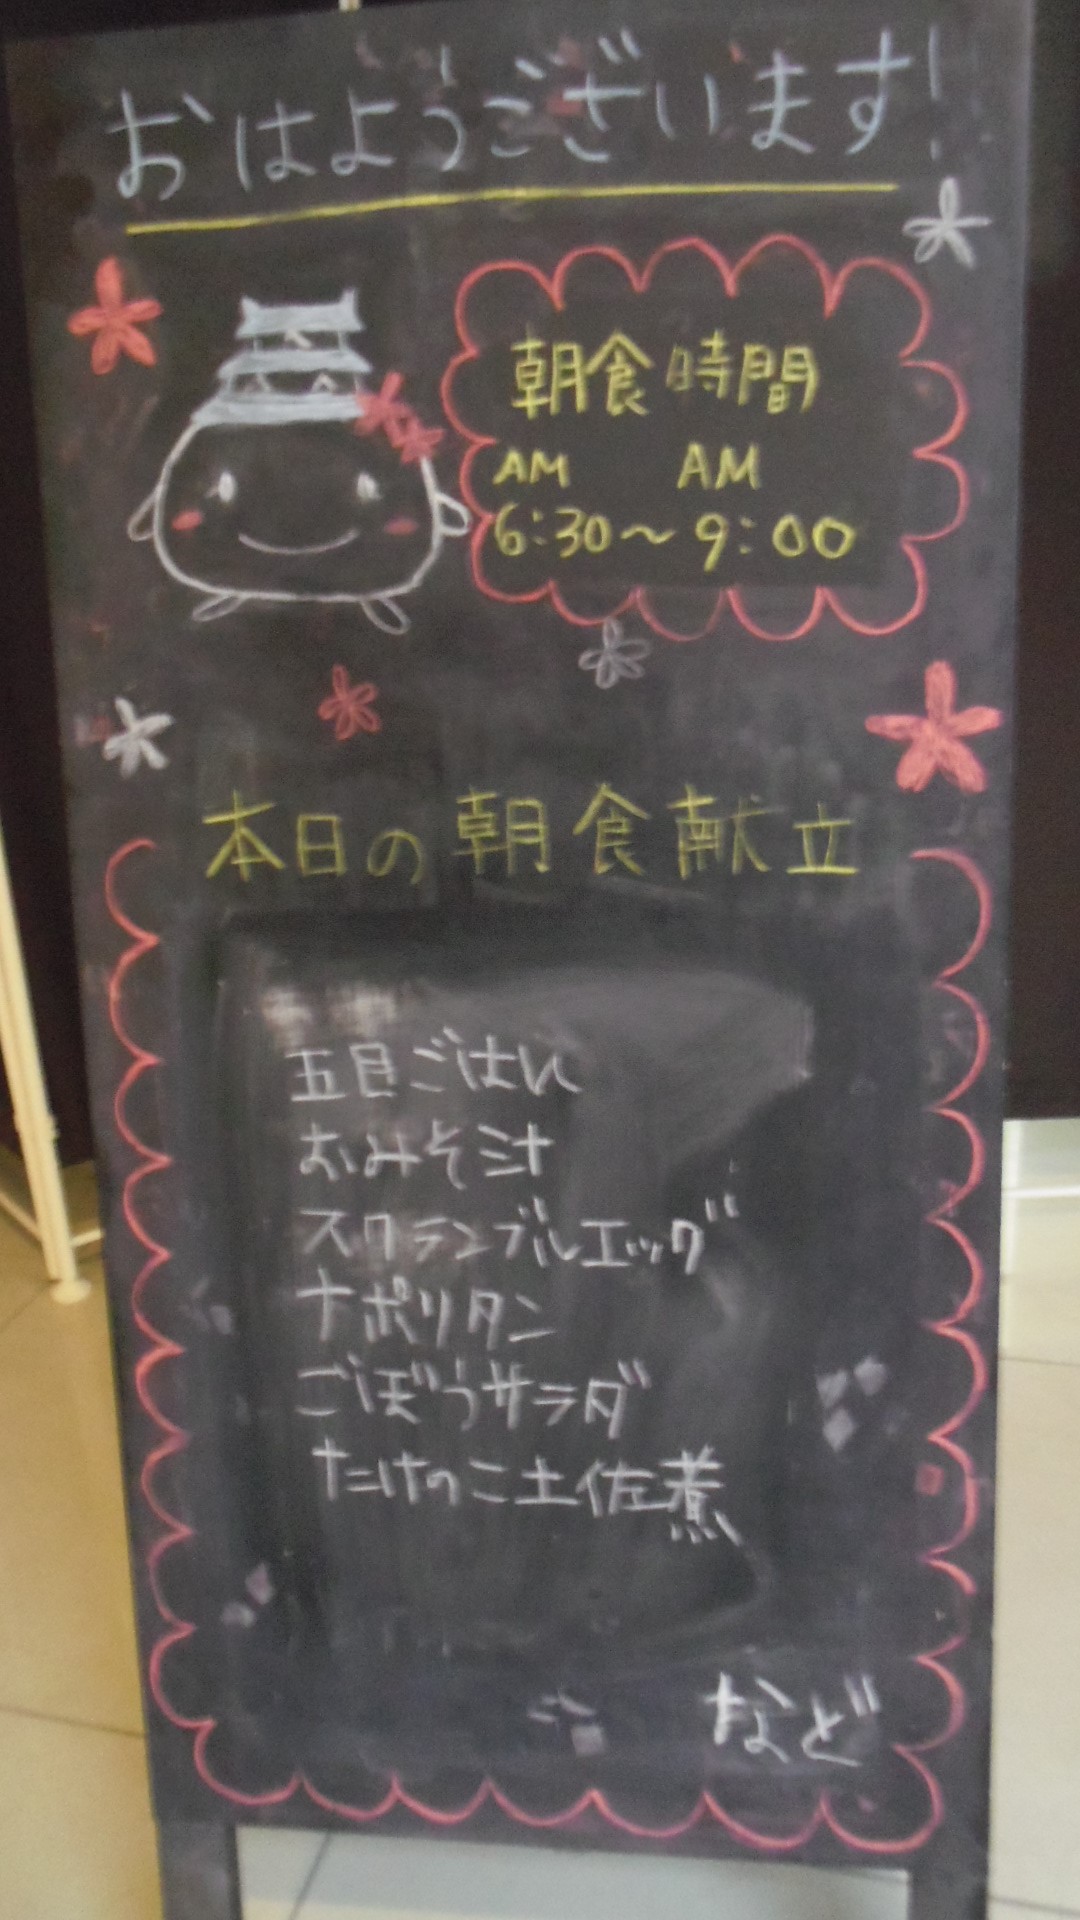 おはようございます!
朝食時間
AM AM
6:30～9:00
本日の朝食献立
五目ごはん
おみそ汁
スクランブルエッグ
ナポリタン
ごぼうサラダ
たけのこ土佐煮
など